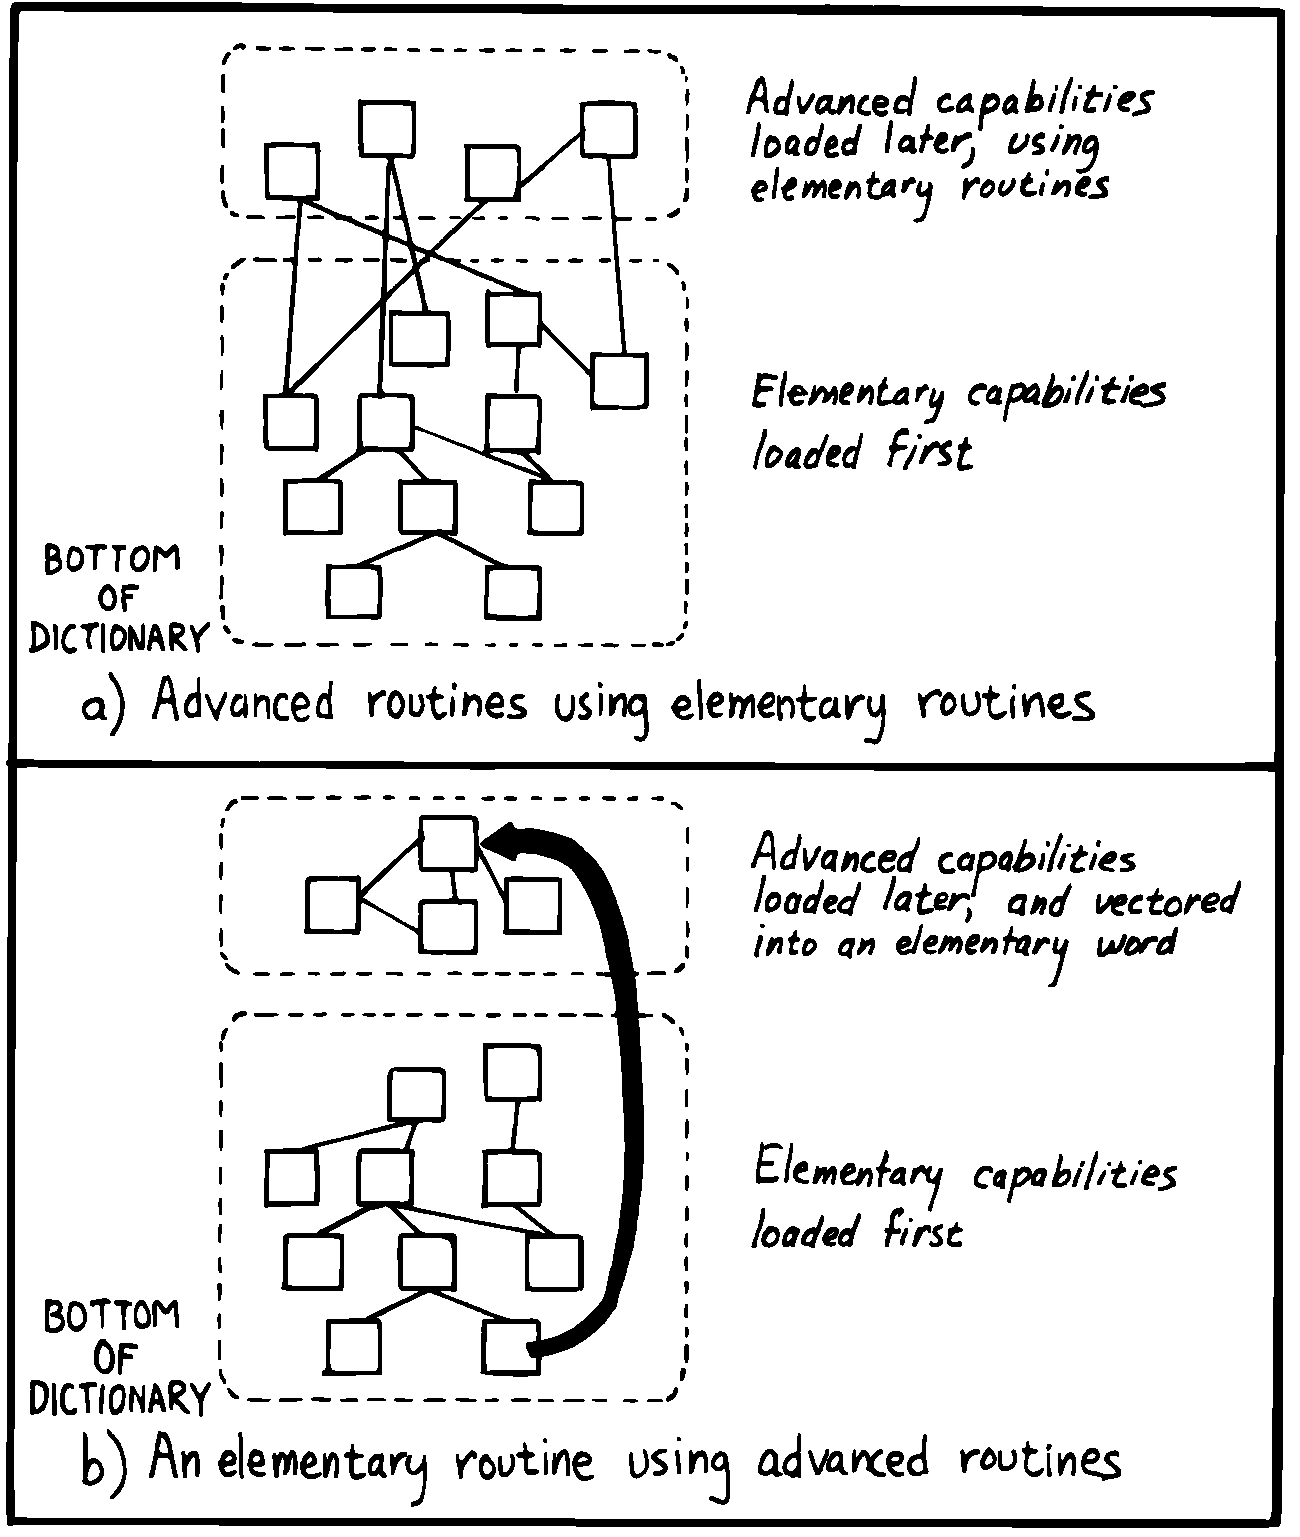 Advanced capabilities
loaded later, using
elementary routines
Elementary capabilities
loaded first
BOTTOM
OF
DICTIONARY
a) Advanced routines using elementary routines
Advanced capabilities
loaded later, and vectored
into an elementary word
Elementary capabilities
loaded first
BOTTOM
OF
DICTIONARY
b) An elementary routine using advanced routines